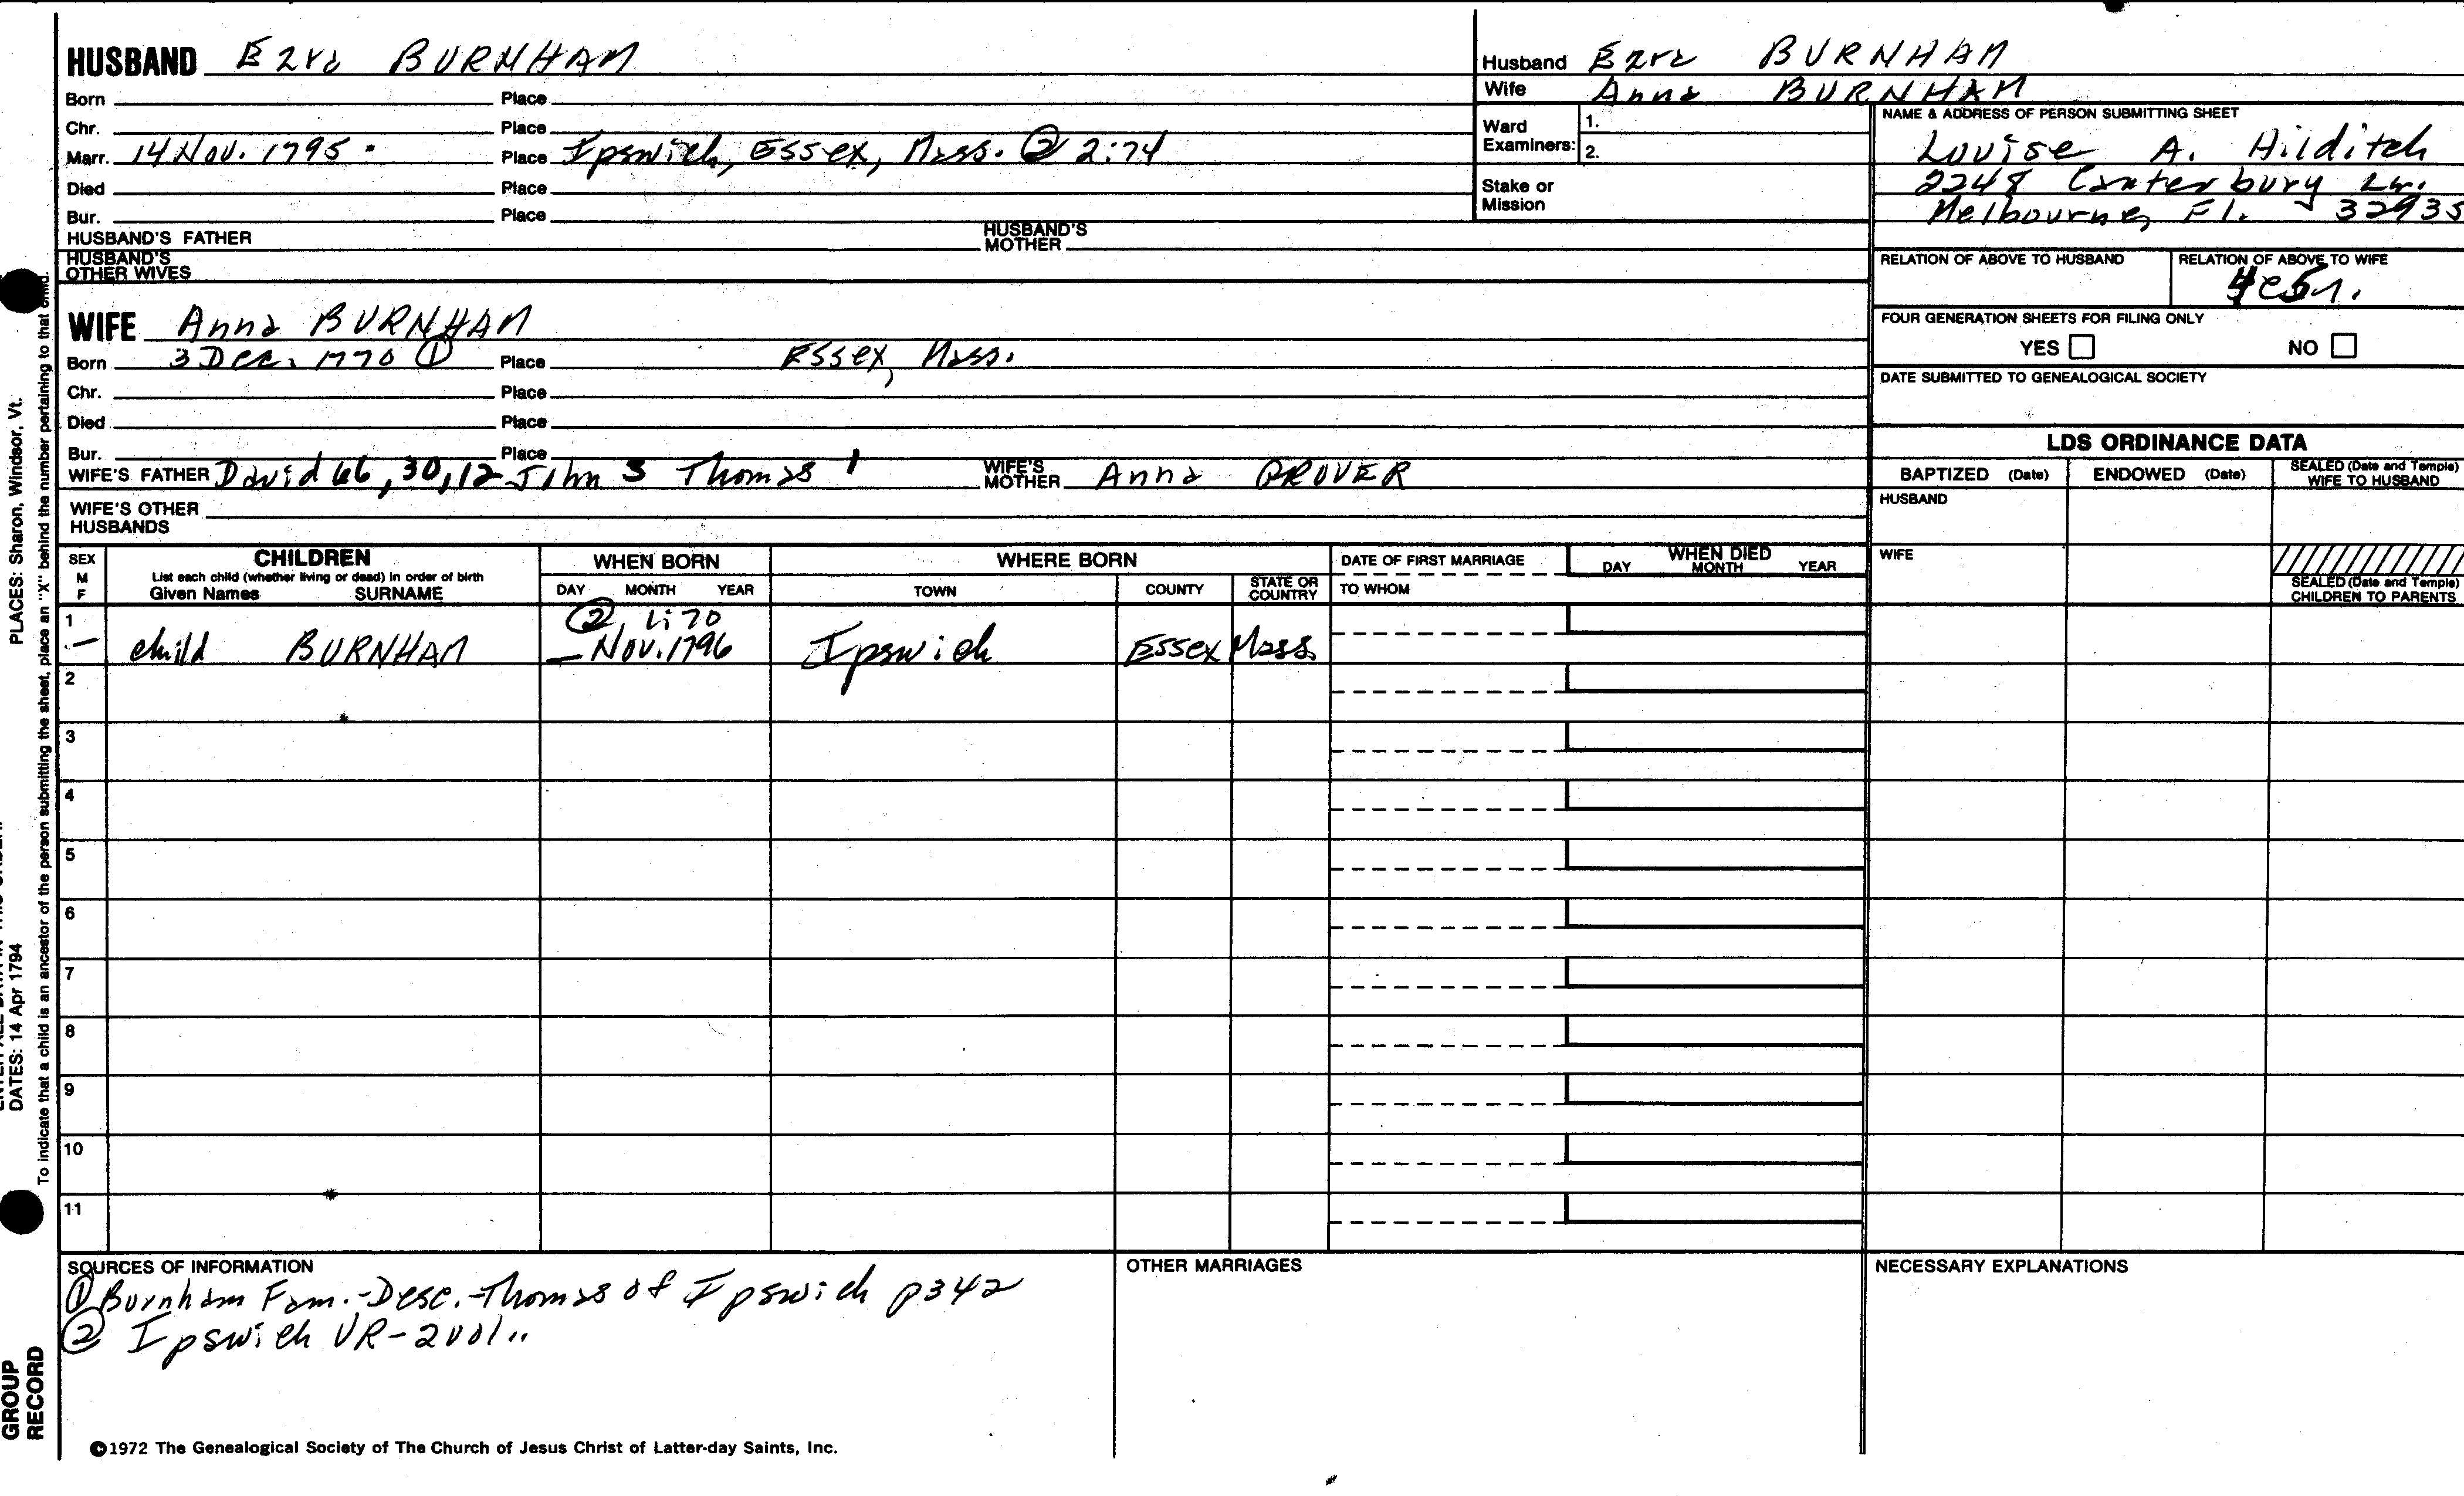 HUSBAND Ezra BURNHAM
Born Place
Chr. Place
Marr. 14 Nov. 1795 Place Ipswich, Essex, Mass. ② 2:74
Died Place
Bur. Place
HUSBAND'S FATHER HUSBAND'S MOTHER
HUSBAND'S OTHER WIVES
WIFE Anna BURNHAM
Born 3 Dec. 1770 ① Place Essex, Mass.
Chr. Place
Died Place
Bur. Place
WIFE'S FATHER David 66, 30, 12 John 3 Thomas 1 WIFE'S MOTHER Anna GROVER
WIFE'S OTHER HUSBANDS
Husband Ezra BURNHAM
Wife Anna BURNHAM
Ward Examiners: 1.
2.
Stake or Mission
NAME & ADDRESS OF PERSON SUBMITTING SHEET
Louise A. Hilditch
2248 Canterbury Ln.
Melbourne, Fl. 32935
RELATION OF ABOVE TO HUSBAND RELATION OF ABOVE TO WIFE
FOUR GENERATION SHEETS FOR FILING ONLY
YES NO
DATE SUBMITTED TO GENEALOGICAL SOCIETY
LDS ORDINANCE DATA
BAPTIZED (Date) ENDOWED (Date) SEALED (Date and Temple) WIFE TO HUSBAND
HUSBAND
WIFE
SEALED (Date and Temple) CHILDREN TO PARENTS
SEX M F
CHILDREN
List each child (whether living or dead) in order of birth
Given Names SURNAME
WHEN BORN
DAY MONTH YEAR
WHERE BORN
TOWN COUNTY STATE OR COUNTRY
DATE OF FIRST MARRIAGE
TO WHOM
WHEN DIED
DAY MONTH YEAR
② 1:70
1 — child BURNHAM — Nov. 1796 Ipswich Essex Mass.
2
3
4
5
6
7
8
9
10
11
SOURCES OF INFORMATION
① Burnham Fam.-Desc.-Thomas of Ipswich p342
② Ipswich VR-2vol..
OTHER MARRIAGES
NECESSARY EXPLANATIONS
©1972 The Genealogical Society of The Church of Jesus Christ of Latter-day Saints, Inc.
PLACES: Sharon, Windsor, Vt.
DATES: 14 Apr 1794
To indicate that a child is an ancestor of the person submitting the sheet, place an "X" behind the number pertaining to that child.
GROUP
RECORD